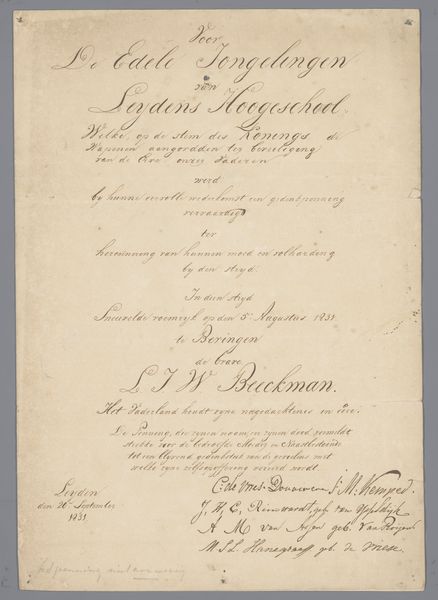 Voor
De Edele Jongelingen
van
Leydens Hoogeschool.
Welke, op de stem des Konings de
Wapenen aangordden ter beveiliging
van de Erve onzer Vaderen
werd
by hunne eervolle wederkomst een gedenkpenning
vervaardigd
ter
herinnering van hunnen moed en volharding
by den stryd.
In dien stryd
Sneuvelde roemryk op den 5e Augustus 1831.
te Beringen
de brave
L. J. W. Beeckman.
Het Vaderland houdt zyne nagedachtenis in eere.
De Penning, die zynen naam, en zynen dood vermeldt
strekke voor de bedroefde Moeder en Naastbestaande
tot een blyvend gedenkstuk van de gevoelens met
welke zyne zelfsopoffering vereerd wordt.
Leyden
den 26 September
1831.
C: de Vries. Douairiere J. M. Kemper.
J. H. E. Reinwardt, geb. van
A M van geb. Van
M. S. L. geb. de Vriese